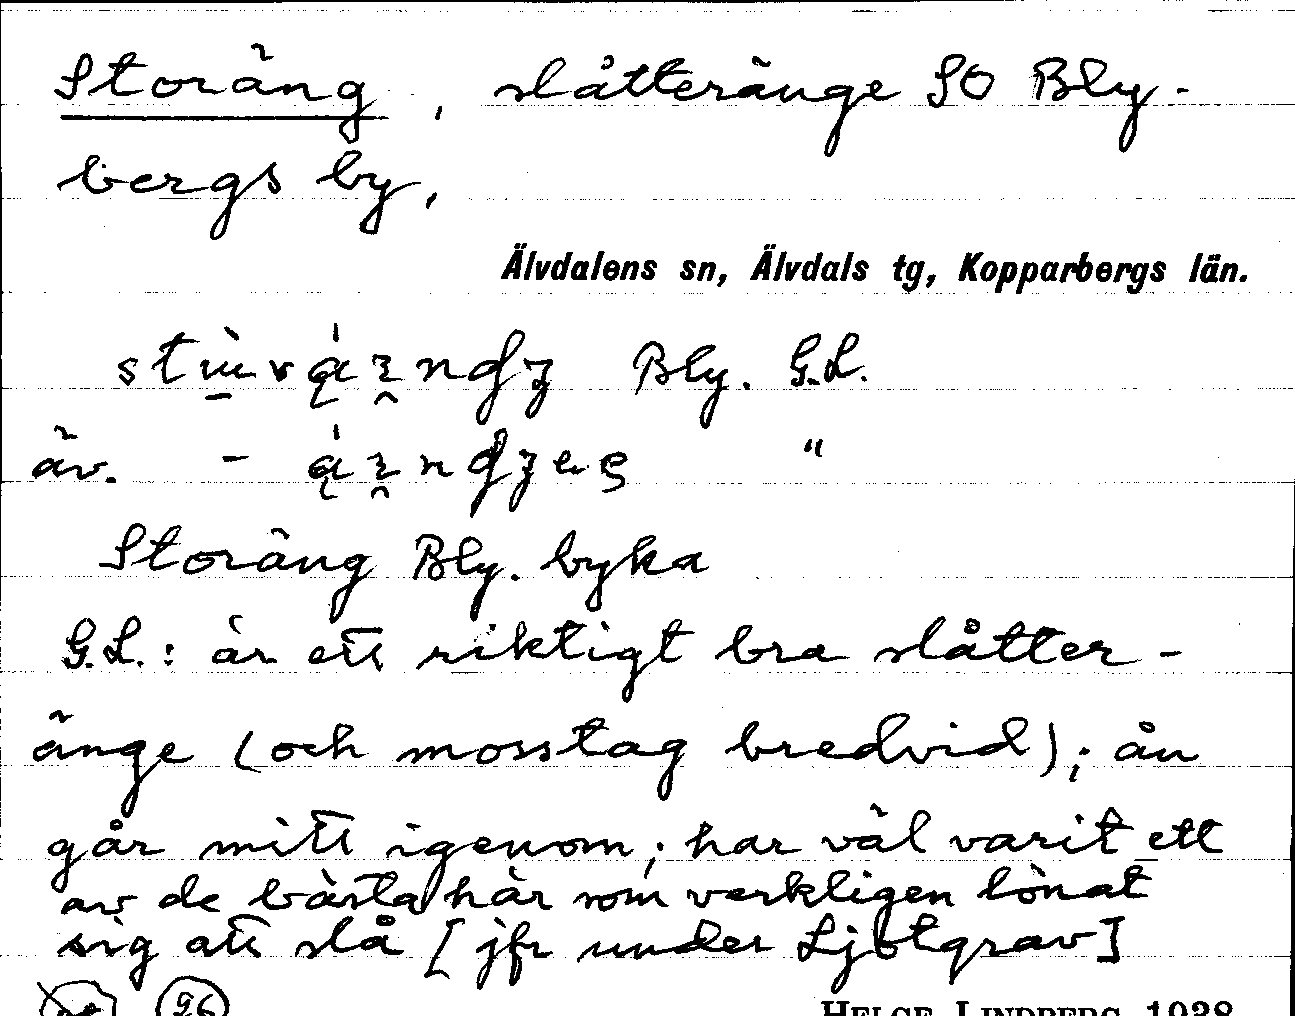 Storäng, slåtteränge SO Bly-
bergs by,
Älvdalens sn, Älvdals tg, Kopparbergs län.
Bly. G.L.
äv. - "
Storäng Bly. byka
G.L.: är ett riktigt bra slåtter-
änge (och mosstag bredvid); ån
går mitt igenom; har väl varit ett
av de bästa här som verkligen lönat
sig att slå [jfr under Ljotgrav]
26
HELGE LINDBERG 1938